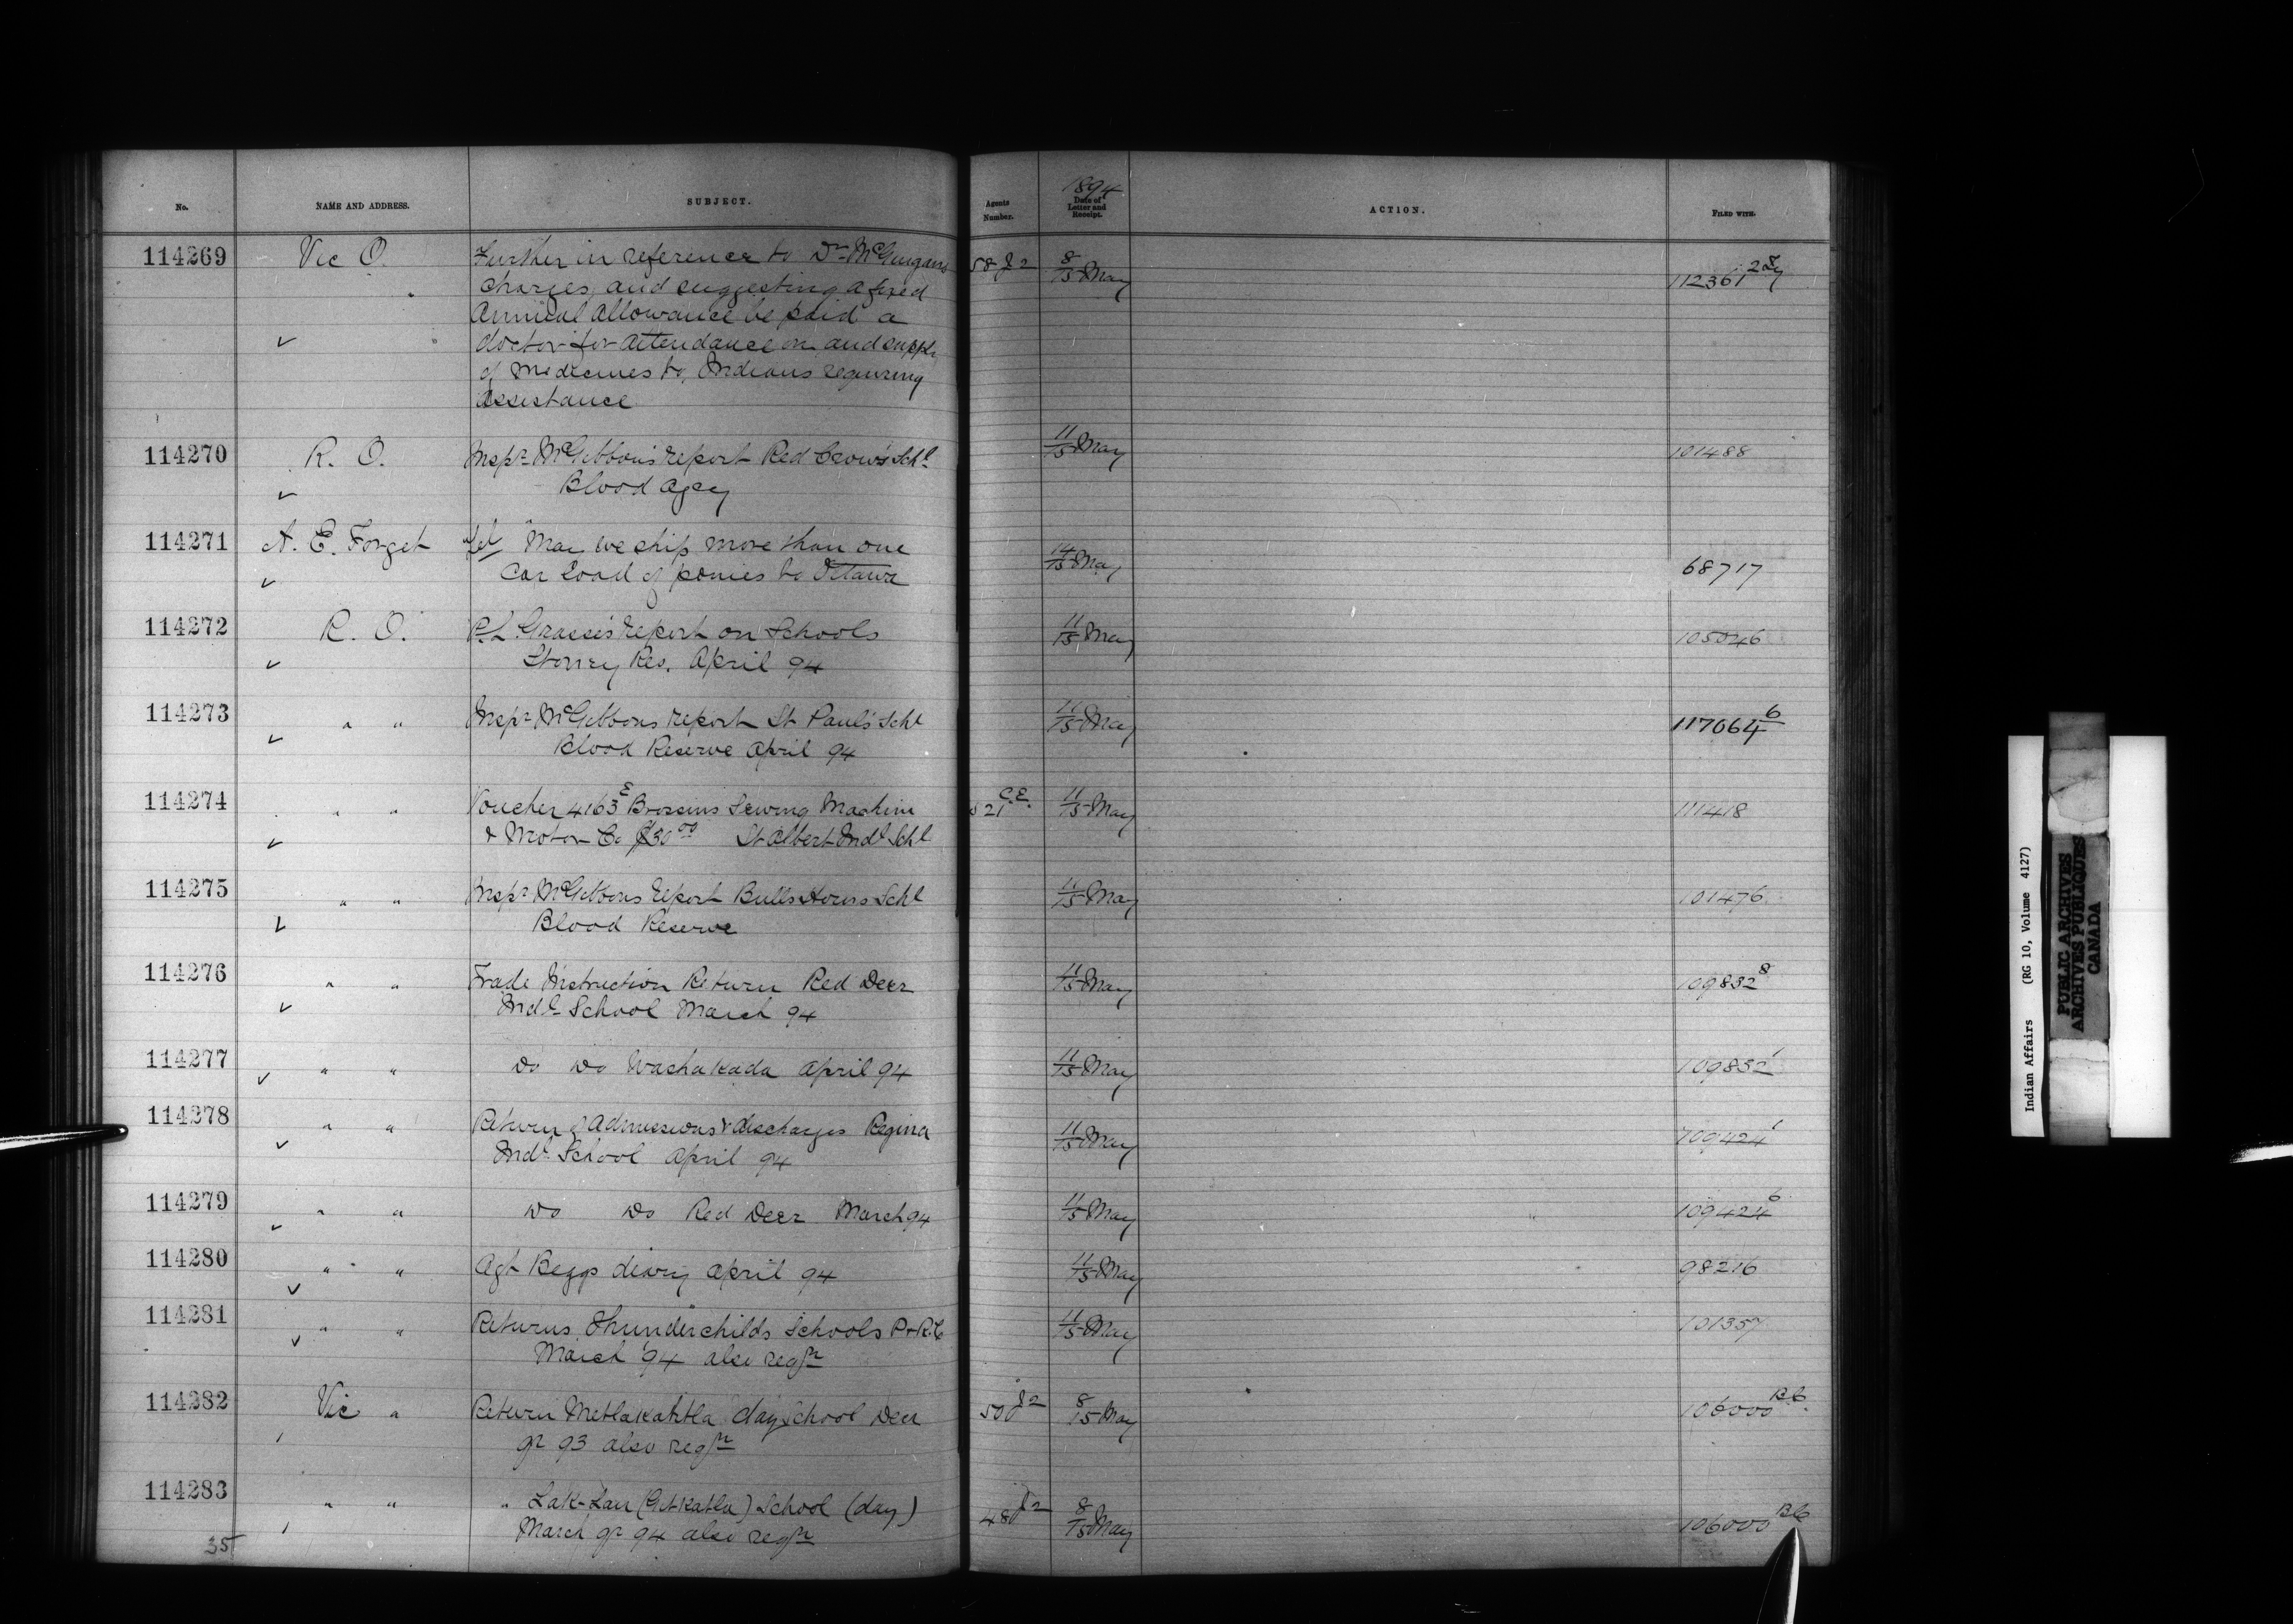 No. NAME AND ADDRESS. SUBJECT. Agents Number. 1894 Date of Letter and Receipt. ACTION. FILED WITH.
114269 Vic O. Further in reference to Dr McGuigans 58 J2 8/15 May 112361
charges, and suggesting a fixed
Annual allowance be paid a
✓ doctor for attendance on and supply
of medicines to, Indians requiring
assistance
114270 R. O. Inspr McGibbon's report Red Crow's Schl 11/15 May 101488
✓ Blood Agcy
114271 A. E. Forget Tel "May we ship more than one 14/15 May 68717
✓ Car load of ponies to Ottawa
114272 R. O. Grasse's report on Schools 11/15 May 105046
✓ Stoney Res. April 94
114273 " " Inspr McGibbons report St Paul's Schl 11/15 May 117064 6
✓ Blood Reserve April 94
114274 " " Voucher 4163 E Brosseus Sewing Machine 521 C.E. 11/15 May 111418
✓ & Motor Co $30 00 St Albert Indl Schl
114275 " " Inspr McGibbons report Bulls Horns Schl 11/15 May 101476
✓ Blood Reserve
114276 " " Trade Instruction Return Red Deer 11/15 May 109832 8
✓ Indl School March 94
114277 ✓ " " Do Do Washakada April 94 11/15 May 109832 1
114278 " " Return of Admissions & discharges Regina 11/15 May 109424 1
✓ Indl School April 94
114279 ✓ " " Do Do Red Deer March 94 11/15 May 109424 6
114280 ✓ " " Agt Beggs diary April 94 11/15 May 98216
114281 ✓ " " Returns Thunderchilds Schools P & R.C 11/15 May 101357
March 94 also reqn
114282 Vic " Return Metlakahtla day School Decr 500 J2 8/15 May 106000 B.C.
qr 93 also reqn
114283 " " " Lak-Lan (Gitkatla) School (day) 480 J2 8/15 May 106000 BC
March qr 94 also reqn
35
Indian Affairs (RG 10, Volume 4127)
PUBLIC ARCHIVES
ARCHIVES PUBLIQUES
CANADA